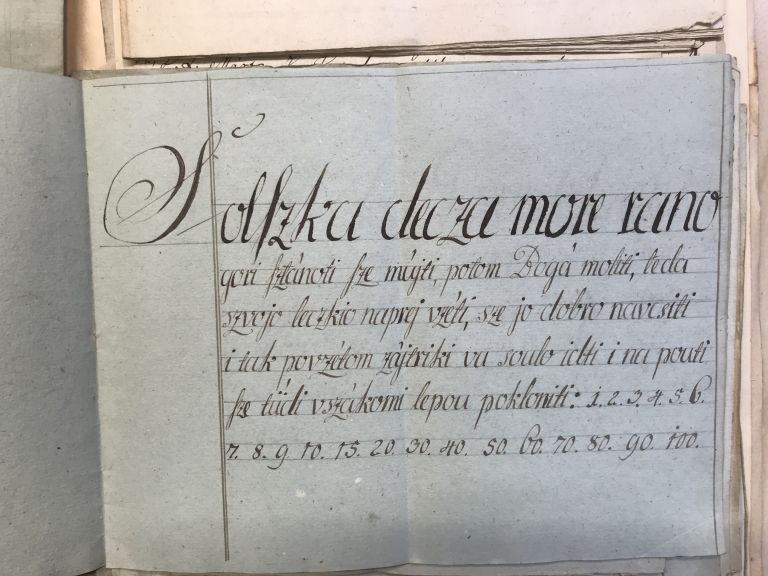 Solszka decza more rano
gori sztánoti sze müjti, potom Bogá moliti, teda
szvojo leczkio naprej vzéti, sze jo dobro navcsiti
i tak povzétom zájtriki va soulo idti i na pouti
sze tüdi vszákomi lepou pokloniti: 1. 2. 3. 4. 5. 6.
7. 8. 9. 10. 15. 20. 30. 40. 50. 60. 70. 80. 90. 100.